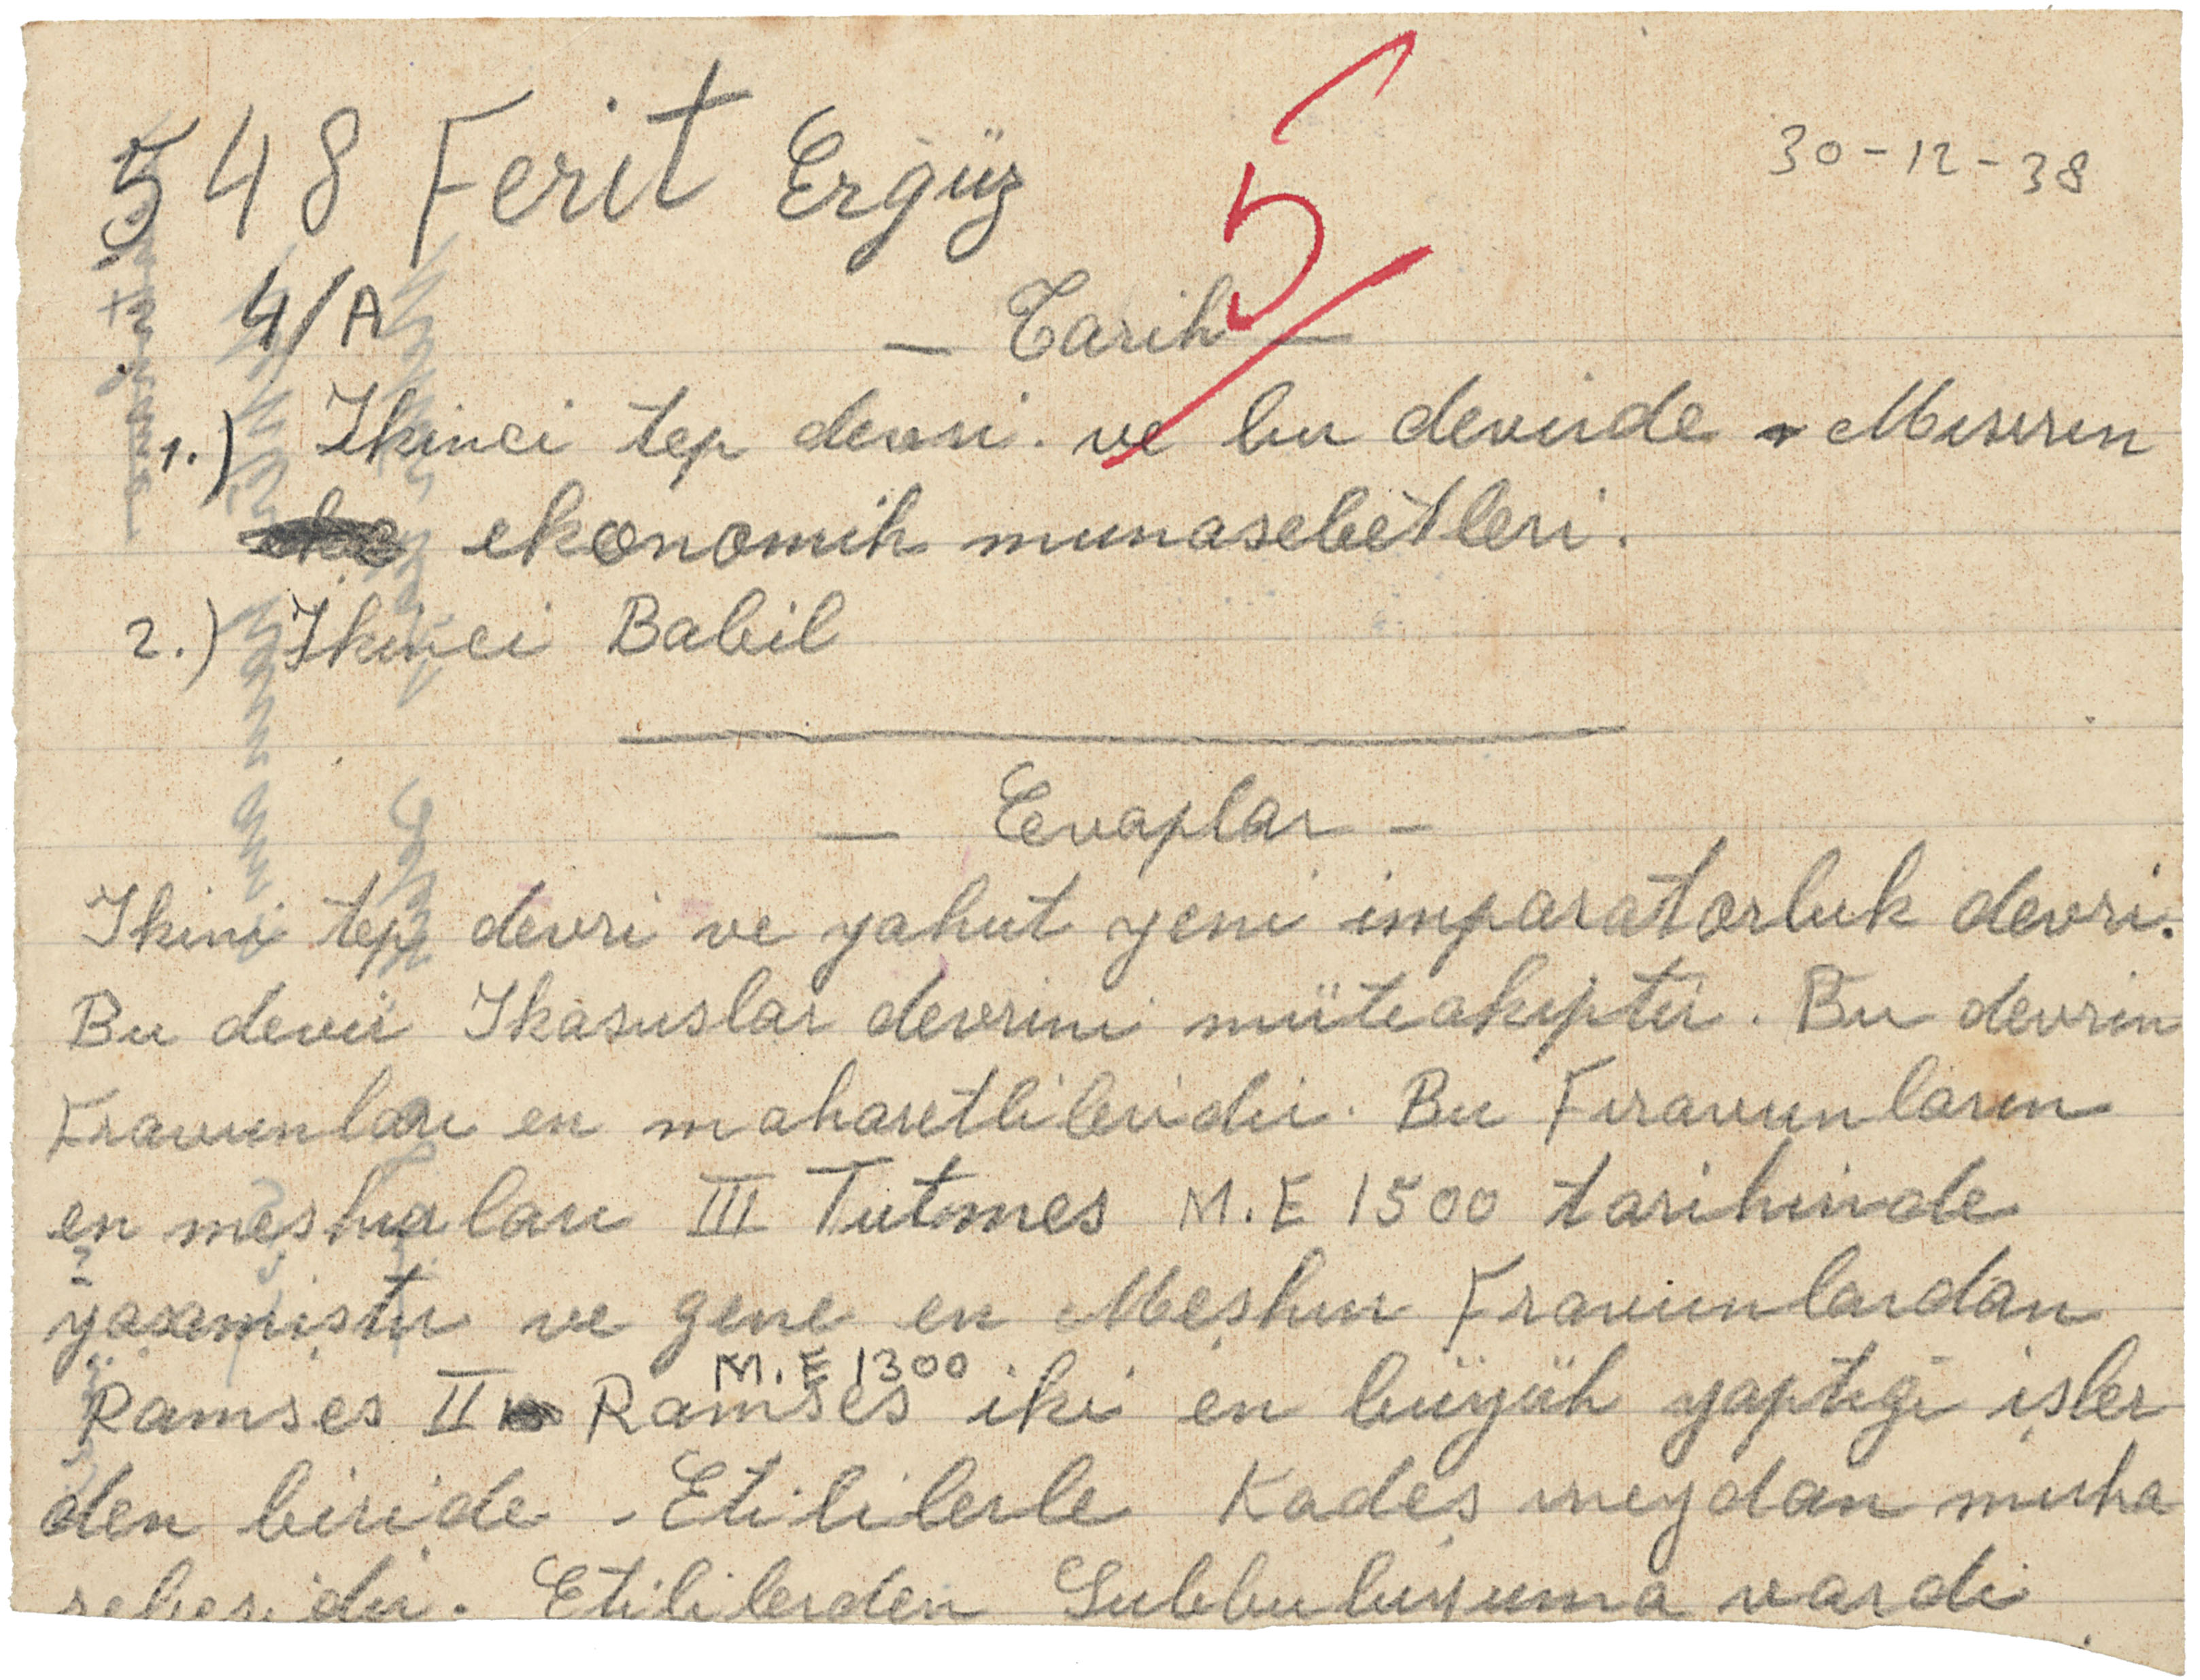 548 Ferit Ergüz
30-12-38
5
4/A
— Tarih —
1.) Ikinci tep devri. ve bu devirde Mısırın
ekonomik munasebetleri.
2.) Ikinci Babil
— Cevaplar —
Ikini tep devri ve yahut yeni imparatorluk devri.
Bu devir Ikasuslar devrini müteakiptir. Bu devrin
Fravunları en maharetlileridir. Bu Firavunların
en meşhurları III Tutmes M.E 1500 tarihinde
yaşamıştır ve gene en Meşhur Fravunlardan
M.E 1300
Ramses II Ramses iki en büyük yaptığı işler
den biride Etililerle Kadeş meydan muha
rebesidir. Etililerden Subbuluyuma vardi